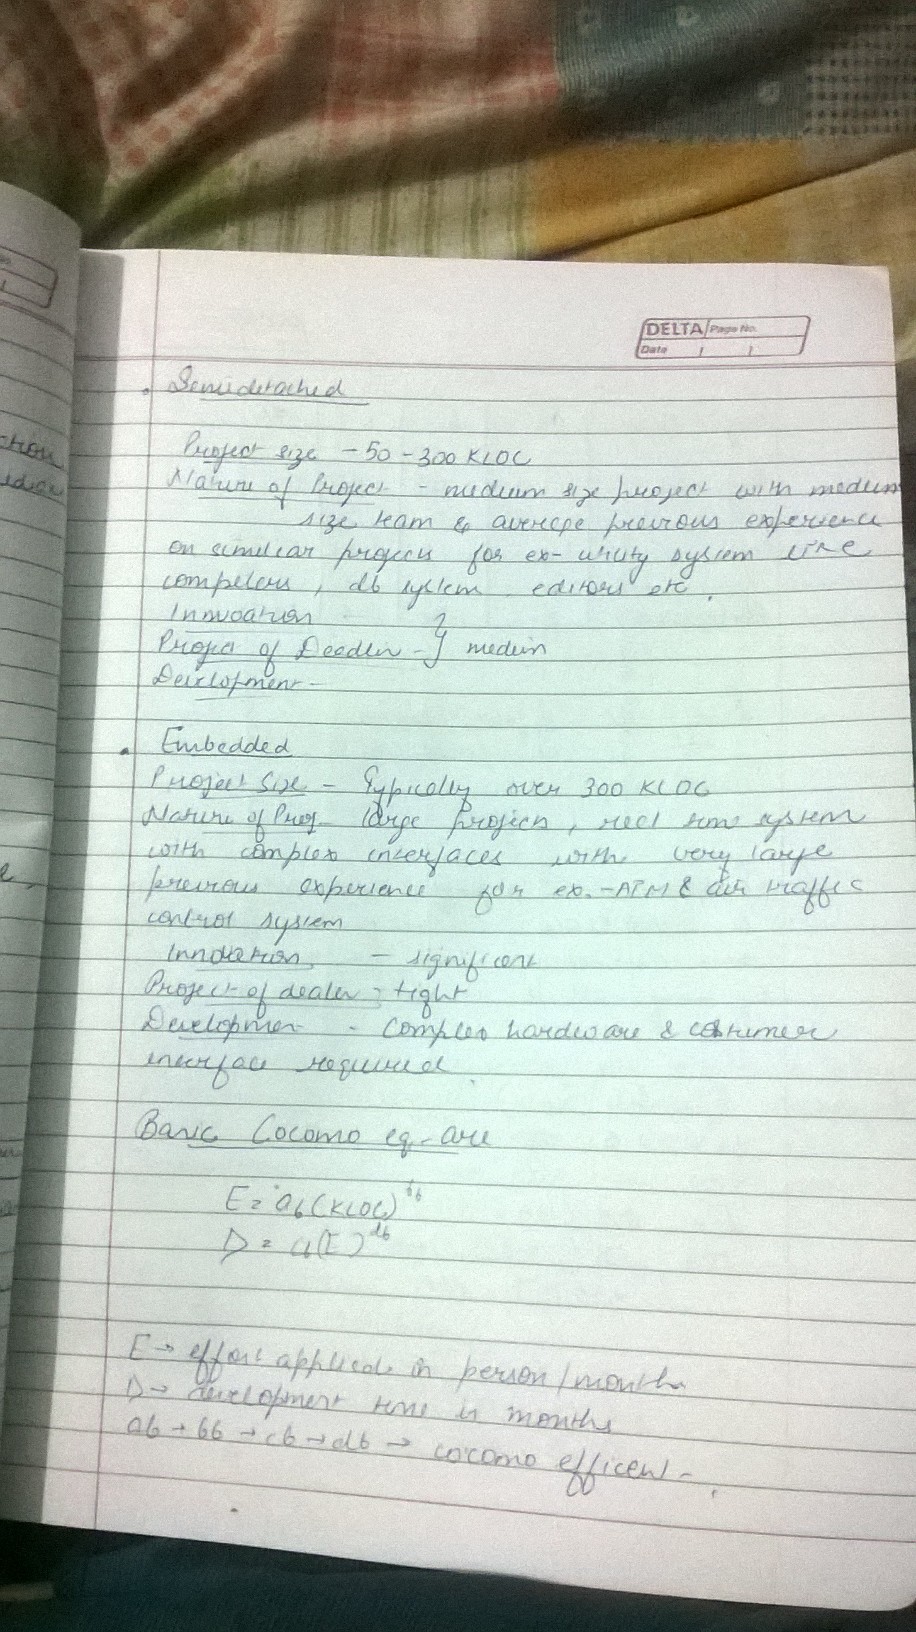 DELTA Page No.
Date / /
. Semidetached
Project size - 50 - 300 KLOC
Nature of Project - medium size project with medium
size team & average previous experience
on similar project for ex- utility system like
compelers, db system editors etc.
Innovation -
Project of Deadlin - } medium
Development -
. Embedded
Project Size - Typically over 300 KLOC
Nature of Proj - large project, real time system
with complex interfaces with very large
previous experience for ex. - ATM & air traffic
control system
Innovation - significant
Project of dealer - tight
Development - Complex hardware & costumer
interface required.
Basic Cocomo eq. are
E = ab (KLOC)^bb
D = cb(E)^db
E → effort applied in person/months
D → development time in months
ab → bb → cb → db → cocomo efficent -